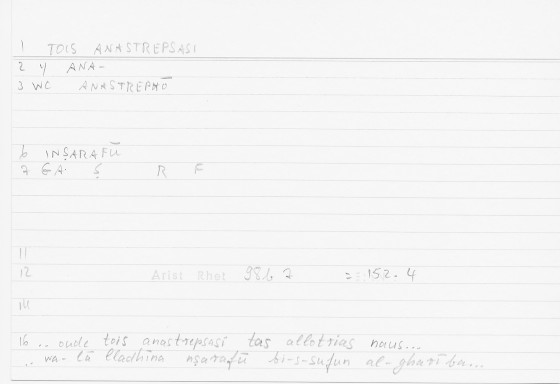 1 TOIS ANASTREPSASI
2 y ANA-
3 WC ANASTREPHŌ
6 INṢARAFŪ
7 EA. Ṣ R F
11
12 Arist Rhet 98b 7 = 152. 4
14
16 .. oude tois anastrepsasi tas allotrias naus...
.. wa-lā lladhīna nṣarafū bi-s-sufun al-gharība...